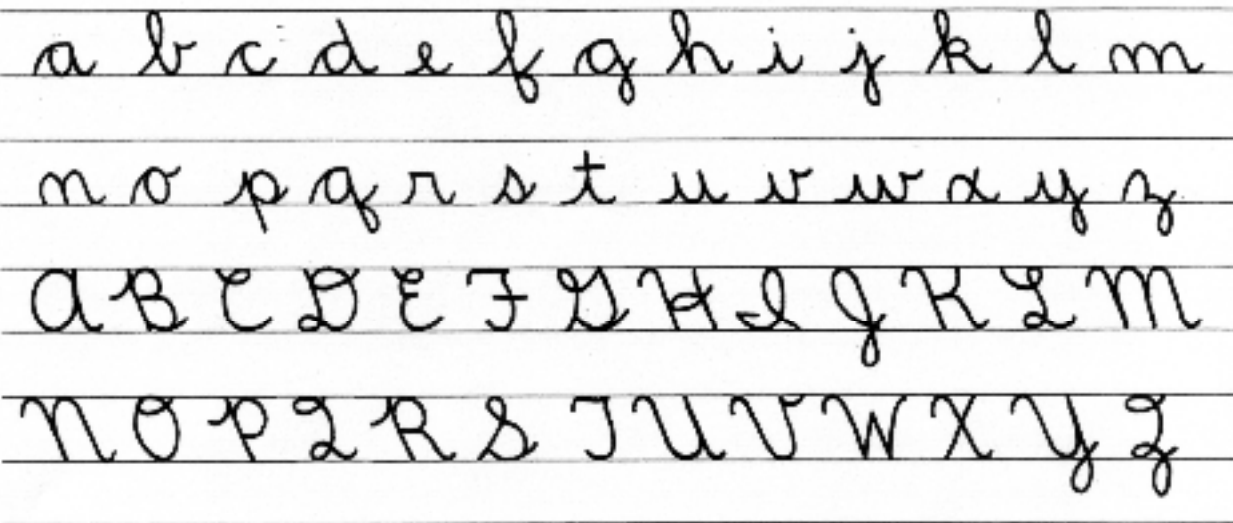 a b c d e f g h i j k l m
n o p q r s t u v w x y z
A B C D E F G H I J K L M
N O P Q R S T U V W X Y Z